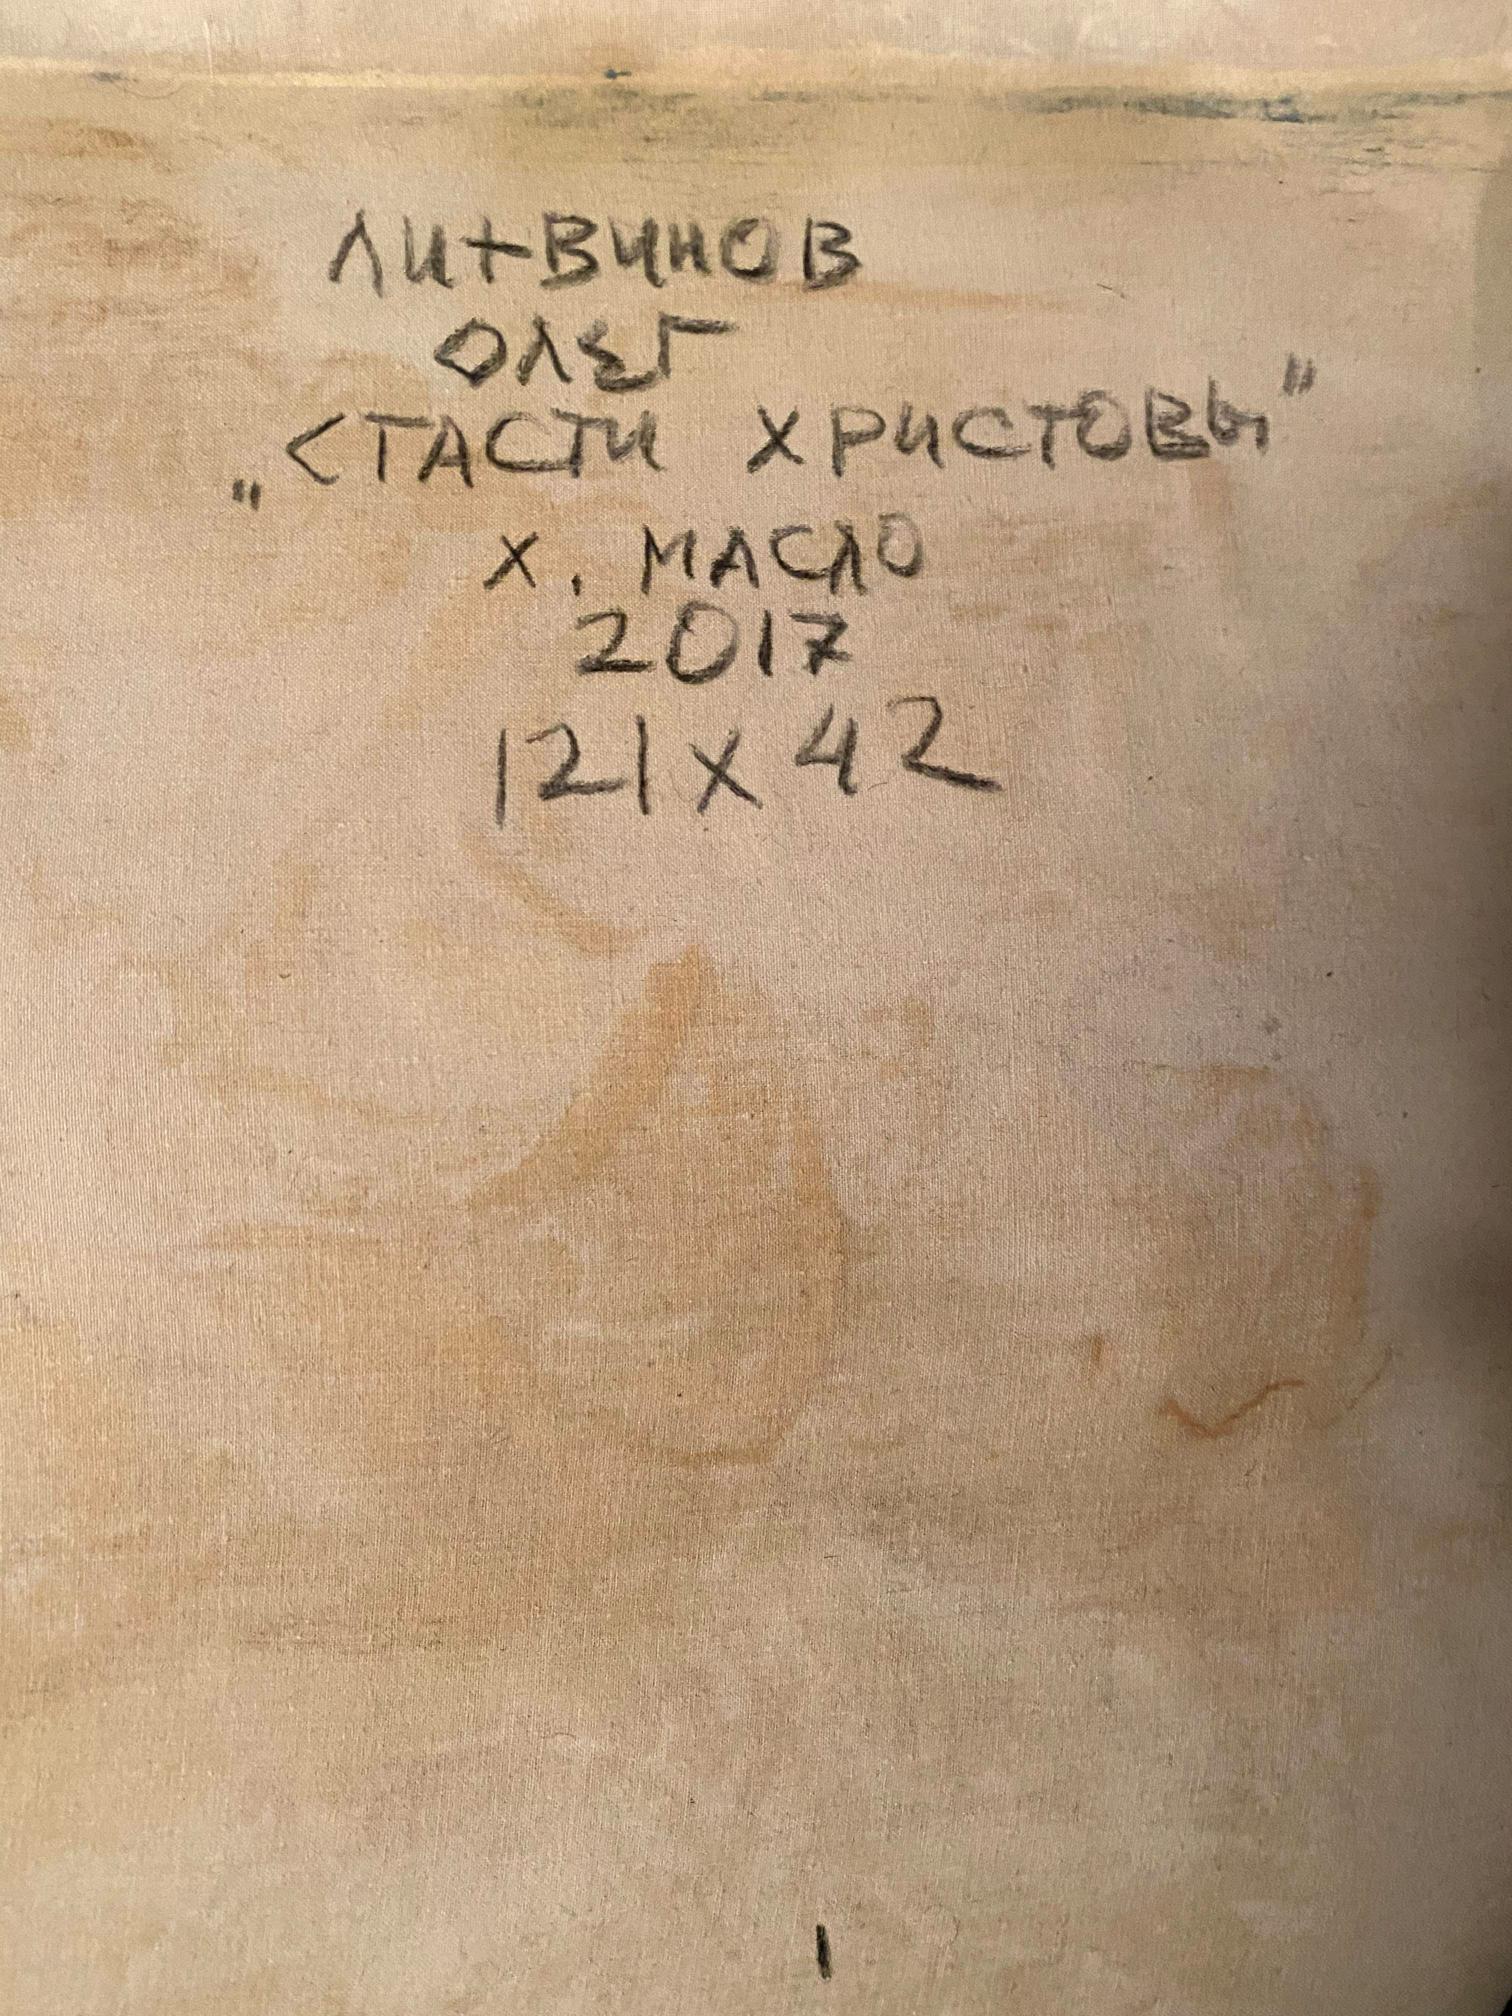 ЛИТВИНОВ
ОЛЕГ
„СТАСТИ ХРИСТОВЫ"
Х. МАСЛО
2017
121 X 42